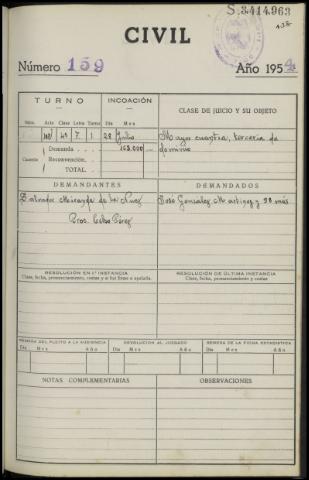 S.3414.963
CIVIL
Número 159 Año 1954
TURNO INCOACIÓN CLASE DE JUICIO Y SU OBJETO
Núm. Clase Letra Turno Día Mes
4ª 7 1 28 Julio Mayor cuantía, tercería de
Cuantía Demanda 163.000 dominio
Reconvención
TOTAL
DEMANDANTES DEMANDADOS
Salvador Miranda de
Proc. Celso Pérez
RESOLUCIÓN EN 1ª INSTANCIA RESOLUCIÓN DE ÚLTIMA INSTANCIA
Clase, fecha, pronunciamiento, costas y si fué firme o apelada. Clase, fecha, pronunciamiento y costas
REMESA DEL PLEITO A LA AUDIENCIA DEVOLUCIÓN AL JUZGADO REMESA DE LA FICHA ESTADÍSTICA
Día Mes Año Día Mes Año Día Mes Año
NOTAS COMPLEMENTARIAS OBSERVACIONES